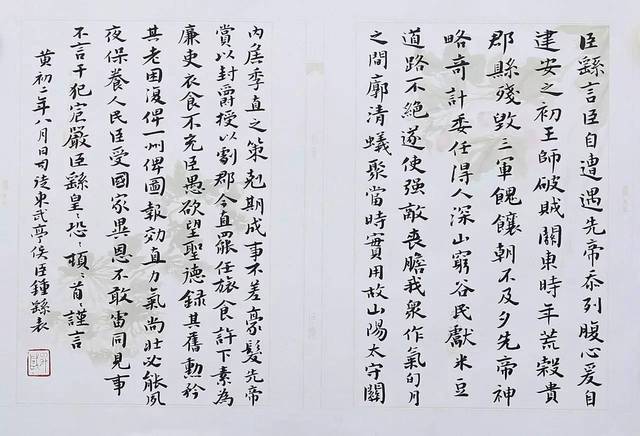 臣繇言臣自遭遇先帝忝列腹心爰自
建安之初王師破賊關東時年荒穀貴
郡縣殘毀三軍餽饟朝不及夕先帝神
略奇計委任得人深山窮谷民獻米豆
道路不絕遂使强敵喪膽我衆作氣旬月
之間廓清蟻聚當時實用故山陽太守關
內侯季直之策剋期成事不差豪髮先帝
賞以封爵授以劇郡今直罷任旅食許下素為
廉吏衣食不充臣愚欲望聖德錄其舊勳矜
其老困復俾一州俾圖報効直力氣尚壯必能夙
夜保養人民臣受國家異恩不敢雷同見事
不言干犯宸嚴臣繇皇〻恐〻頓〻首〻謹言
黃初二年八月日司徒東武亭侯臣鍾繇表